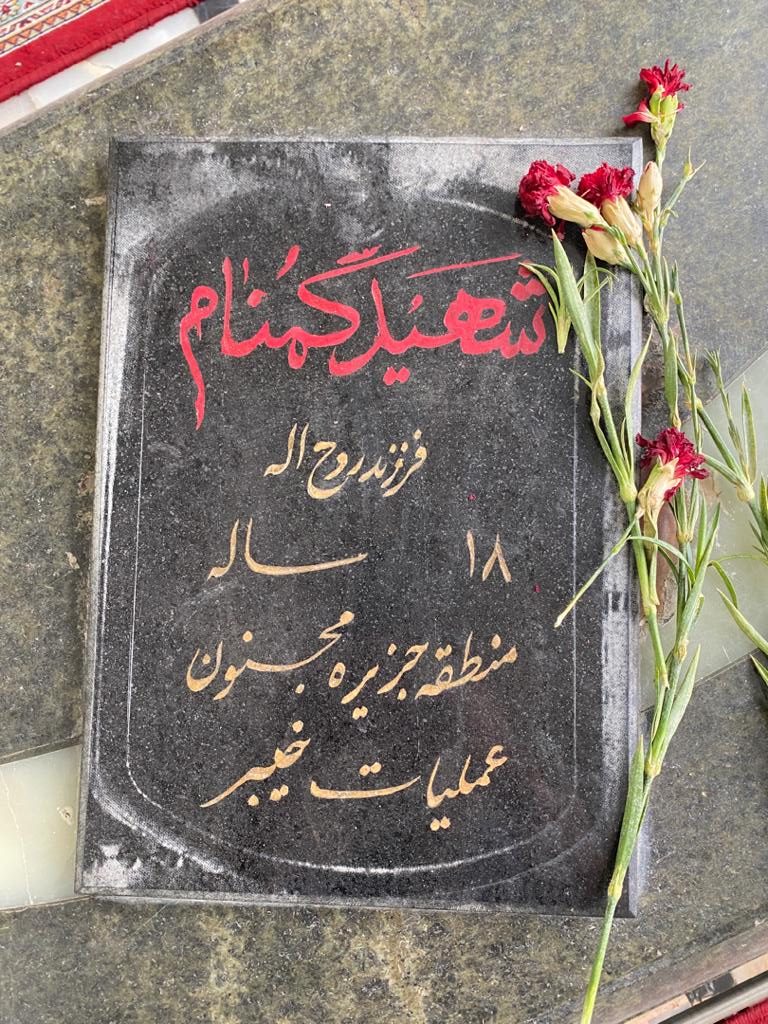 شهید گمنام
فرزند روح اله
۱۸ ساله
منطقه جزیره مجنون
عملیات خیبر